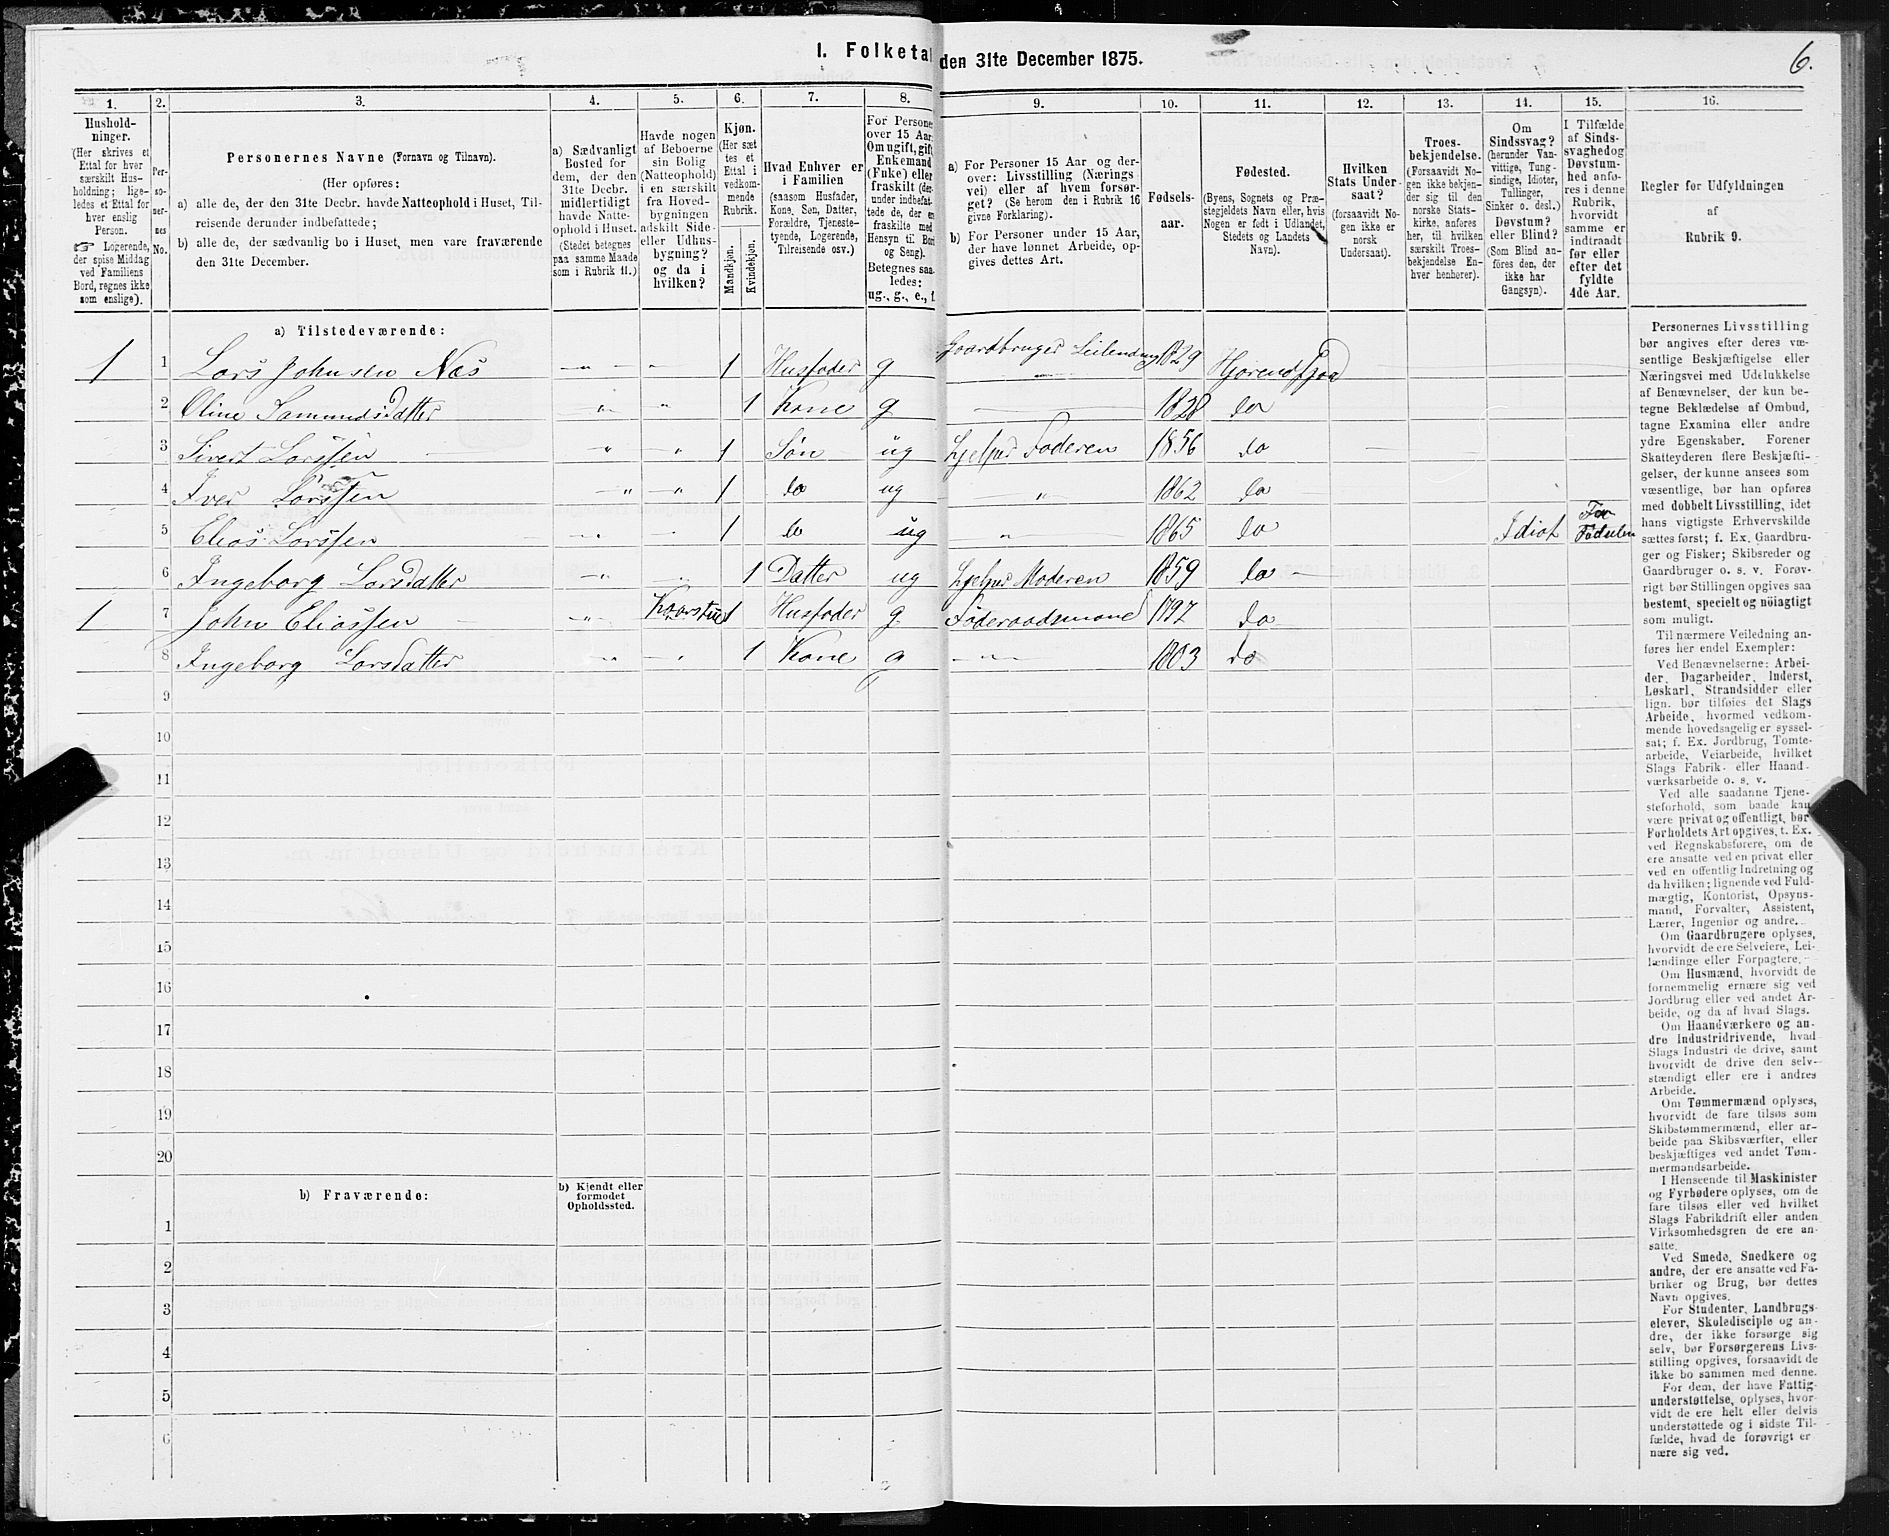 I. Folketal den 31te December 1875.
6.
1. 2. 3. 4. 5. 6. 7. 8. 9. 10. 11. 12. 13. 14. 15. 16.
Hushold-
ninger.
(Her skrives et
Ettal for hver
særskilt Hus-
holdning; lige-
ledes et Ettal for
hver enslig
Person.
☞ Logerende,
der spise Middag
ved Familiens
Bord, regnes ikke
som enslige).
Per-
so-
ner-
nes
No.
Personernes Navne (Fornavn og Tilnavn).
(Her opføres:
a) alle de, der den 31te Decbr. havde Natteophold i Huset, Til-
reisende derunder indbefattede;
b) alle de, der sædvanlig bo i Huset, men vare fraværende
den 31te December.
a) Sædvanligt
Bosted for
dem, der den
31te Decbr.
midlertidigt
havde Natte-
ophold i Huset.
(Stedet betegnes
paa samme Maade
som i Rubrik 11.)
Havde nogen
af Beboerne
sin Bolig
(Natteophold)
i en særskilt
fra Hoved-
bygningen
adskilt Side-
eller Udhus-
bygning?
og da i
hvilken?
Kjøn.
(Her sæt-
tes et
Ettal i
vedkom-
mende
Rubrik.
Mandkjøn.
Kvindekjøn.
Hvad Enhver er
i Familien
(saasom Husfader,
Kone, Søn, Datter,
Forældre, Tjeneste-
tyende, Logerende,
Tilreisende osv.)
For Personer
over 15 Aar:
Om ugift, gift,
Enkemand
(Enke) eller
fraskilt (der-
under indbefat-
tede de, der ere
fraskilte med
Hensyn til Bord
og Seng).
Betegnes saa-
ledes:
ug., g., e., f.
a) For Personer 15 Aar og der-
over: Livsstilling (Nærings-
vei) eller af hvem forsør-
get? (Se herom den i Rubrik 16
givne Forklaring).
b) For Personer under 15 Aar,
der have lønnet Arbeide, op-
gives dettes Art.
Fødsels-
aar.
Fødested.
(Byens, Sognets og Præ-
stegjeldets Navn eller, hvis
Nogen er født i Udlandet,
Stedets og Landets
Navn).
Hvilken
Stats Under-
saat?
(forsaavidt No-
gen ikke er
norsk
Undersaat).
Troes-
bekjendelse.
(Forsaavidt No-
gen ikke bekjen-
der sig til den
norske Stats-
kirke, anføres
her, til hvilken
særskilt Troes-
bekjendelse En-
hver henhører).
Om
Sindssvag?
(herunder Van-
vittige, Tung-
sindige, Idioter,
Tullinger,
Sinker o. desl.)
Døvstum?
eller Blind?
(Som Blind an-
føres den, der
ikke har
Gangsyn).
I Tilfælde
af Sinds-
svaghed og
Døvstum-
hed anfø-
res i denne
Rubrik,
hvorvidt
samme er
indtraadt
før eller
efter det
fyldte
4de Aar.
Regler for Udfyldningen
af
Rubrik 9.
a) Tilstedeværende:
1 1 Lars Johnsen Næs 1 Husfader g Gaardbruger Leilending 1829 Hjørendfjord
2 Oline Samundsdatter 1 Kone g 1828 do
3 Sivert Larssen 1 Søn ug hjelper Faderen 1856 do
4 Iver Larssen 1 do ug " 1862 do
5 Elias Larssen 1 do ug " 1865 do Idiot Før Fødselen
6 Ingeborg Larsdatter 1 Datter ug hjelper Moderen 1859 do
1 7 John Eliassen 1 Husfader g Føderaadsmand 1797 do
8 Ingeborg Larsdatter 1 Kone g 1803 do
9
10
11
12
13
14
15
16
17
18
19
20
b) Fraværende:
b) Kjendt eller
formodet
Opholdssted.
1
2
3
4
5
6
Personernes Livsstilling
bør angives efter deres væ-
sentlige Beskjæftigelse eller
Næringsvei med Udelukkelse
af Benævnelser, der kun be-
tegne Beklædelse af Ombud,
tagne Examina eller andre
ydre Egenskaber. Forener
Skatteyderen flere Beskjæfti-
gelser, der kunne ansees som
væsentlige, bør han opføres
med dobbelt Livsstilling, idet
hans vigtigste Erhvervskilde
sættes først; f. Ex. Gaardbru-
ger og Fisker; Skibsreder og
Gaardbruger o. s. v. Forøv-
rigt bør Stillingen opgives saa
bestemt, specielt og nöiagtigt
som muligt.
Til nærmere Veiledning an-
føres her endel Exempler:
Ved Benævnelserne: Arbei-
der, Dagarbeider, Inderst,
Løskarl, Strandsidder eller
lign. bør tilføies det Slags
Arbeide, hvormed vedkom-
mende hovedsagelig er syssel-
sat; f. Ex. Jordbrug, Tomte-
arbeide, Veiarbeide, hvilket
Slags Fabrik- eller Haand-
værksarbeide o. s. v.
Ved alle saadanne Tjene-
steforhold, som baade kan
være privat og offentligt, bør
Forholdets Art opgives, t. Ex.
ved Regnskabsførere, om de
ere ansatte ved en privat eller
ved en offentlig Indretning og
da hvilken; lignende ved Fuld-
mægtig, Kontorist, Opsyns-
mand, Forvalter, Assistent,
Lærer, Ingeniør og andre.
Om Gaardbrugere oplyses,
hvorvidt de ere Selveiere, Lei-
lændinge eller Forpagtere.
Om Husmænd, hvorvidt de
fornemmelig ernære sig ved
Jordbrug eller ved andet Ar-
beide, og da af hvad Slags.
Om Haandværkere og an-
dre Industridrivende, hvad
Slags Industri de drive, samt
hvorvidt de drive den selv-
stændigt eller ere i andres
Arbeide.
Om Tømmermænd oplyses,
hvorvidt de fare tilsøs som
Skibstømmermænd, eller ar-
beide paa Skibsværfter, eller
beskjæftiges ved andet Tøm-
mermandsarbeide.
I Henseende til Maskinister
og Fyrbødere oplyses, om de
fare tilsøs eller ved hvilket
Slags Fabrikdrift eller anden
Virksomhedsgren de ere an-
satte.
Ved Smede, Snedkere og
andre, der ere ansatte ved Fa-
briker og Brug, bør dettes
Navn opgives.
For Studenter, Landbrugs-
elever, Skoledisciple og an-
dre, der ikke forsørge sig
selv, bør Forsørgerens Livs-
stilling opgives, forsaavidt de
ikke bo sammen med denne.
For dem, der have Fattig-
understøttelse, oplyses, hvor-
vidt de ere helt eller delvis
understøttede og i sidste Til-
fælde, hvad de forøvrigt er-
nære sig ved.